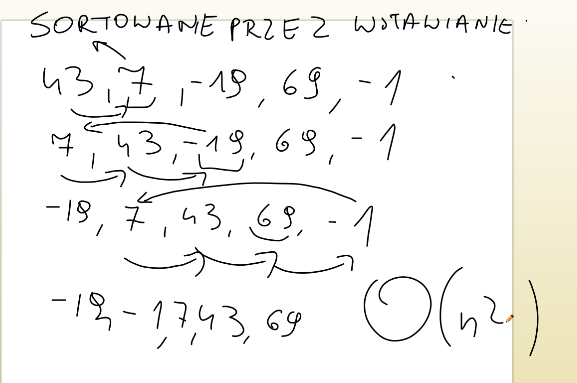 SORTOWANIE PRZEZ WSTAWIANIE
43, 7, -19, 69, -1
7, 43, -19, 69, -1
-19, 7, 43, 69, -1
-19, -1, 7, 43, 69
O(n2)